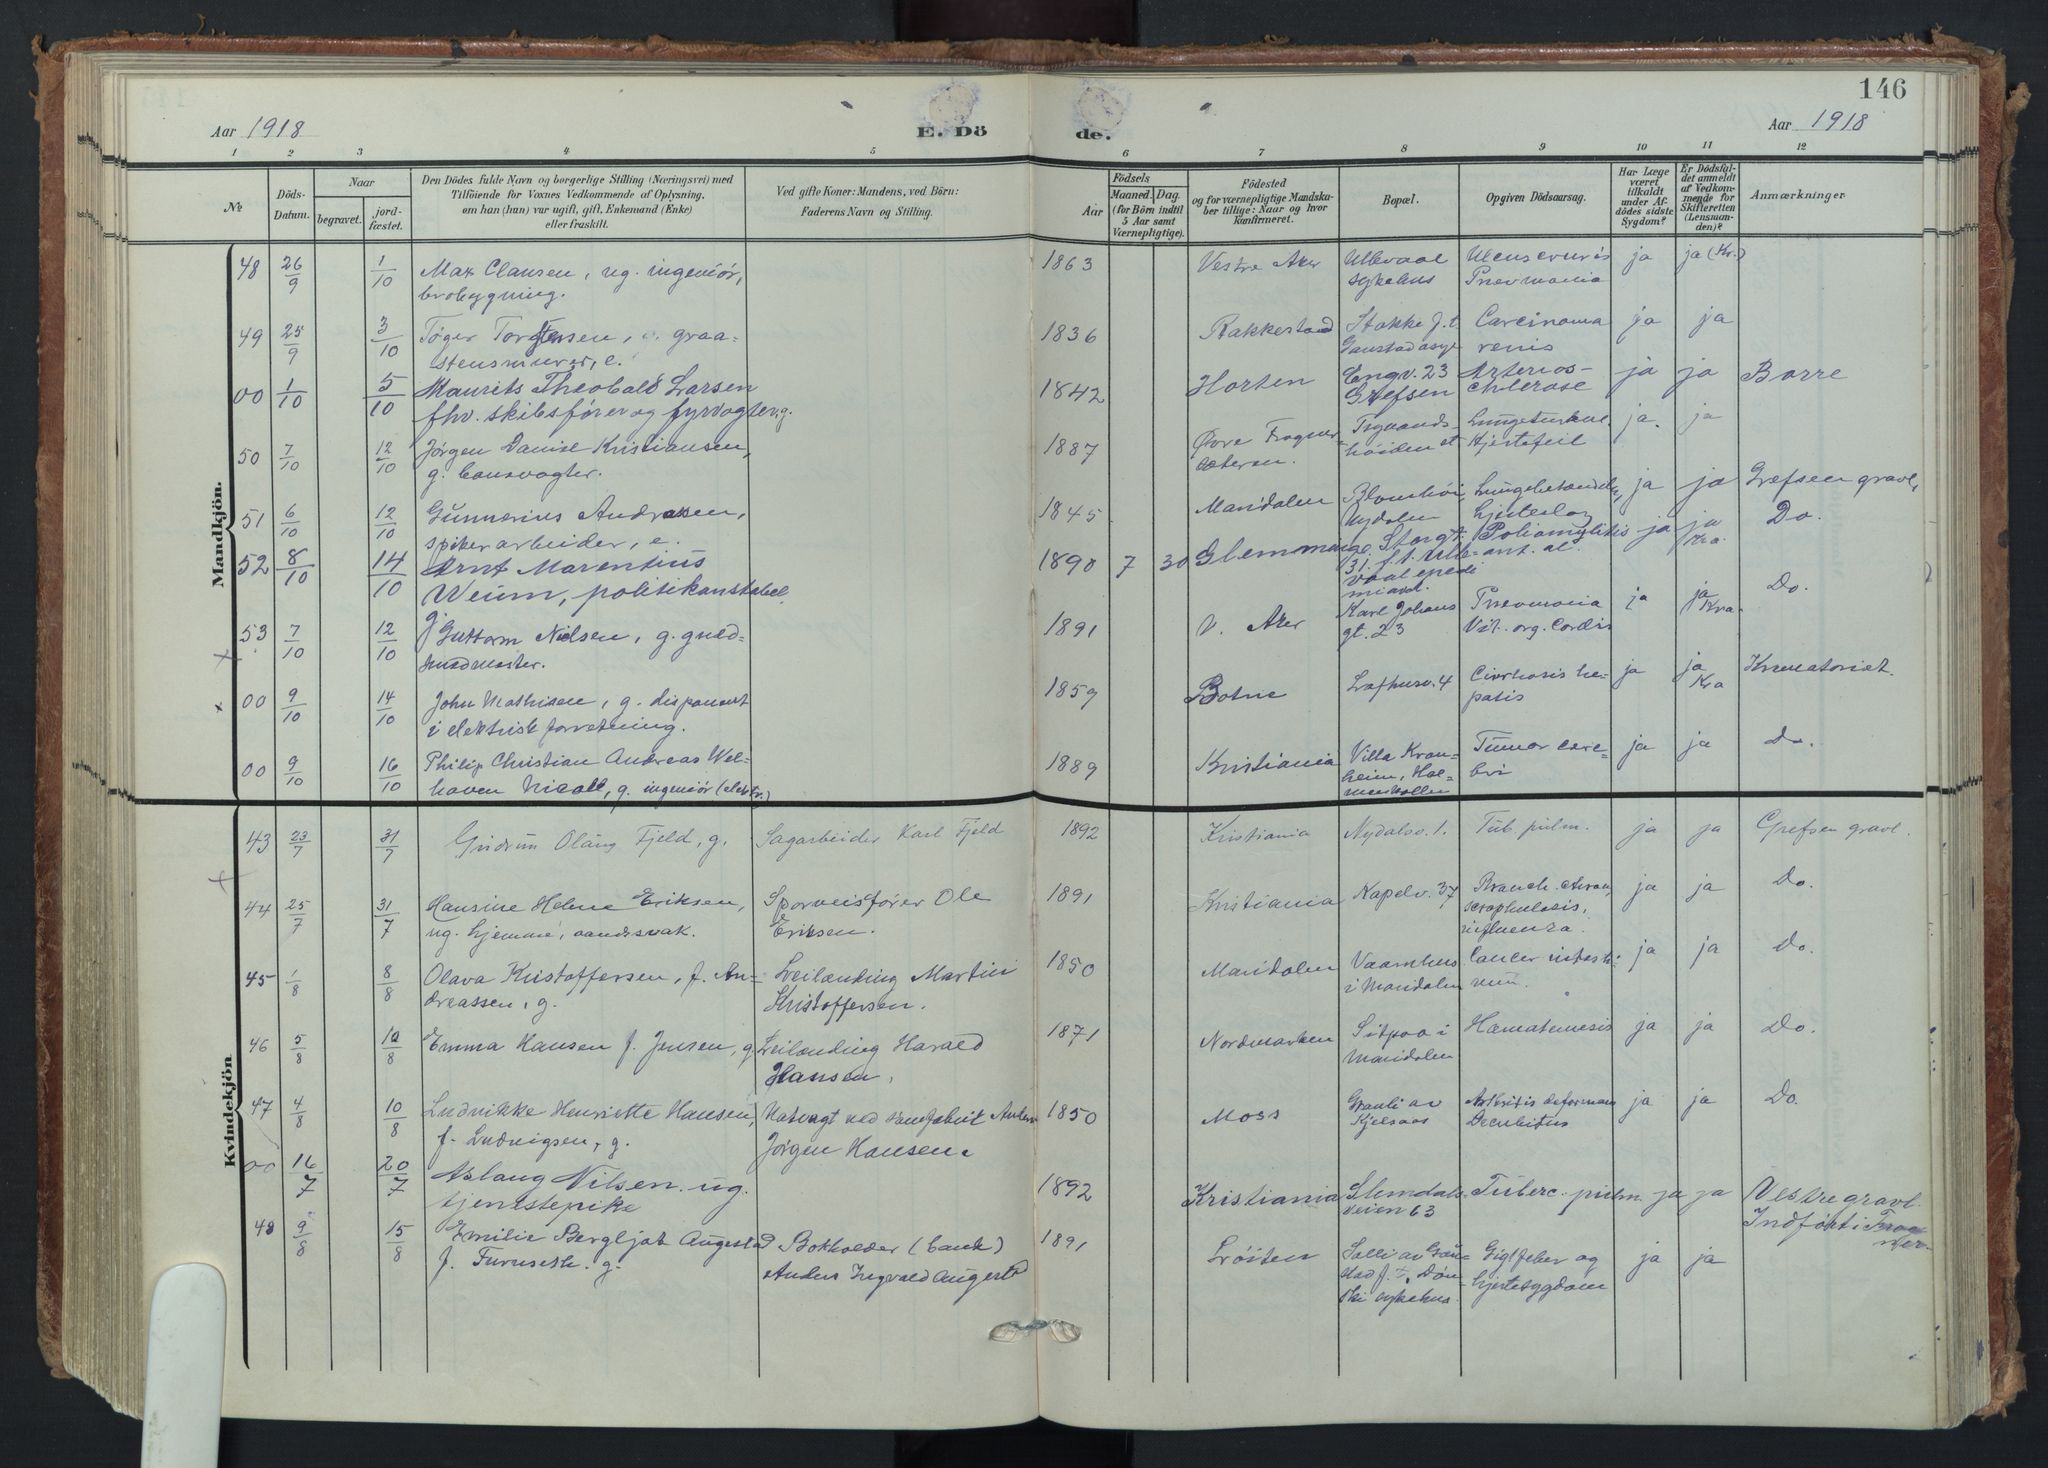 146
Aar 1918
E. Dö
de.
Aar 1918
1 2 3 4 5 6 7 8 9 10 11 12
№
Döds-
Datum.
Naar
begravet.
jord-
fæstet.
Den Dödes fulde Navn og borgerlige Stilling (Næringsvei) med
Tilföiende for Voxnes Vedkommende af Oplysning,
om han (hun) var ugift, gift, Enkemand (Enke)
eller fraskilt.
Ved gifte Koner: Mandens, ved Börn:
Faderens Navn og Stilling.
Födsels
Aar
Maaned. Dag.
(for Börn indtil
5 Aar samt
Værnepligtige).
Födested
og for værnepligtige Mandska-
ber tillige: Naar og hvor
konfirmeret.
Bopæl.
Opgiven Dödsaarsag.
Har Læge
været
tilkaldt
under Af-
dödes sidste
Sygdom?
Er Dödsfal-
det anmeldt
af Vedkom-
mende for
Skifteretten
(Lensman-
den)?
Anmærkninger
Mandkjön.
48 26/9 1/10 Max Clausen, ug. ingeniör,
brobygning.
1863 Vestre Aker Ullevaal
sykehus Ulcus cruris
Pnevmonia ja ja (Kr.)
49 25/9 3/10 Tøger Torgersen, graa-
stensmurer, e.
1836 Rakkestad Stokke f. t.
Gaustad asyl Carcinoma
renis ja ja
00 1/10 5/10 Maurits Theobald Larsen
fhv. skibsfører og fyrvogter, g.
1842 Horten Engv. 23
Grefsen Arterios-
chlerose ja ja Borre
50 7/10 12/10 Jörgen Daniel Kristiansen,
g. banevogter.
1887 Øvre Frogner-
sæteren. Tryvands-
höiden Lungetuberkul.
Hjertefeil ja. ja
51 6/10 12/10 Gunnerius Andreassen,
spikerarbeider, e.
1845 Maridalen
Nydalen Lungebetændelse,
hjerteslag ja ja Grefsen gravl.
52 8/10 14/10 Arnt Marentius
Weium, politikonstabel,
g.
1890 7 30 Glemminge Storgt.
31. f. t. Ulle-
vaal epedi
miavd. Poliomylitis
ant. al. ja ja
Kra. Do.
53 7/10 12/10 Guttorm Nielsen, g. guld-
smedmester.
1891 V. Aker Karl Johans
gt. 23 Pnevmonia
Vit. org. Cordis ja ja
Kra Do.
00 9/10 14/10 John Mathisen, g. disponent
i elektrisk forretning.
1859 Botne Lofthusv. 4 Cirrhosis he-
patis ja ja
Kra Krematoriet.
00 9/10 16/10 Philip Christian Andreas Wel-
haven Nicoll, g. ingeniör (elektr.)
1889 Kristiania Villa Kron-
heim, Hol-
menkollen Tumor cere-
bri ja ja Do.
Kvindekjön
43 23/7 31/7 Gudrun Olaug Fjeld, g. Sagarbeider Karl Fjeld
1892 Kristiania Nydalsv. 1. Tub. pulm. ja ja Grefsen gravl.
44 25/7 31/7 Hansine Helene Eriksen,
ug. hjemme, aandssvak. Sporveisfører Ole
Eriksen.
1891 Kristiania Kapelv. 37 Bronch. chron,
scrophulosis,
influenza ja ja Do.
45 1/8 8/8 Olava Kristoffersen, f. An-
dreassen, g. Leilænding Martin
Kristoffersen.
1850 Maridalen Vaamhus
i Maridalen Cancer intesti-
num. ja ja Do.
46 5/8 10/8 Emma Hansen f. Jensen, g. Leilænding Harald
Hansen,
1871 Nordmarken Sitpaa i
Maridalen Hæmatemesis ja ja Do.
47 4/8 10/8 Ludvikke Henriette Hansen,
f. Ludvigsen, g. Natvagt ved
Jörgen Hansen.
1850 Moss Granli av
Kjelsaas Arthritis deformans
Decubitus ja ja Do.
00 16/7 20/7 Aslaug Nilsen. ug.
tjenestepike
1892 Kristiania Slemdals-
veien 63 Tuberc. pulm ja ja Vestre gravl.
Indført i Frog-
ner.
48 9/8 15/8 Emilie Bergljot Augestad
f. Furuseth. g. Bokholder (bank)
Anders Ingvald Augestad
1891 Løiten Solli av Gau-
stad f. t. Diak.
sykehus. Gigtfeber og
hjertesygdom ja ja